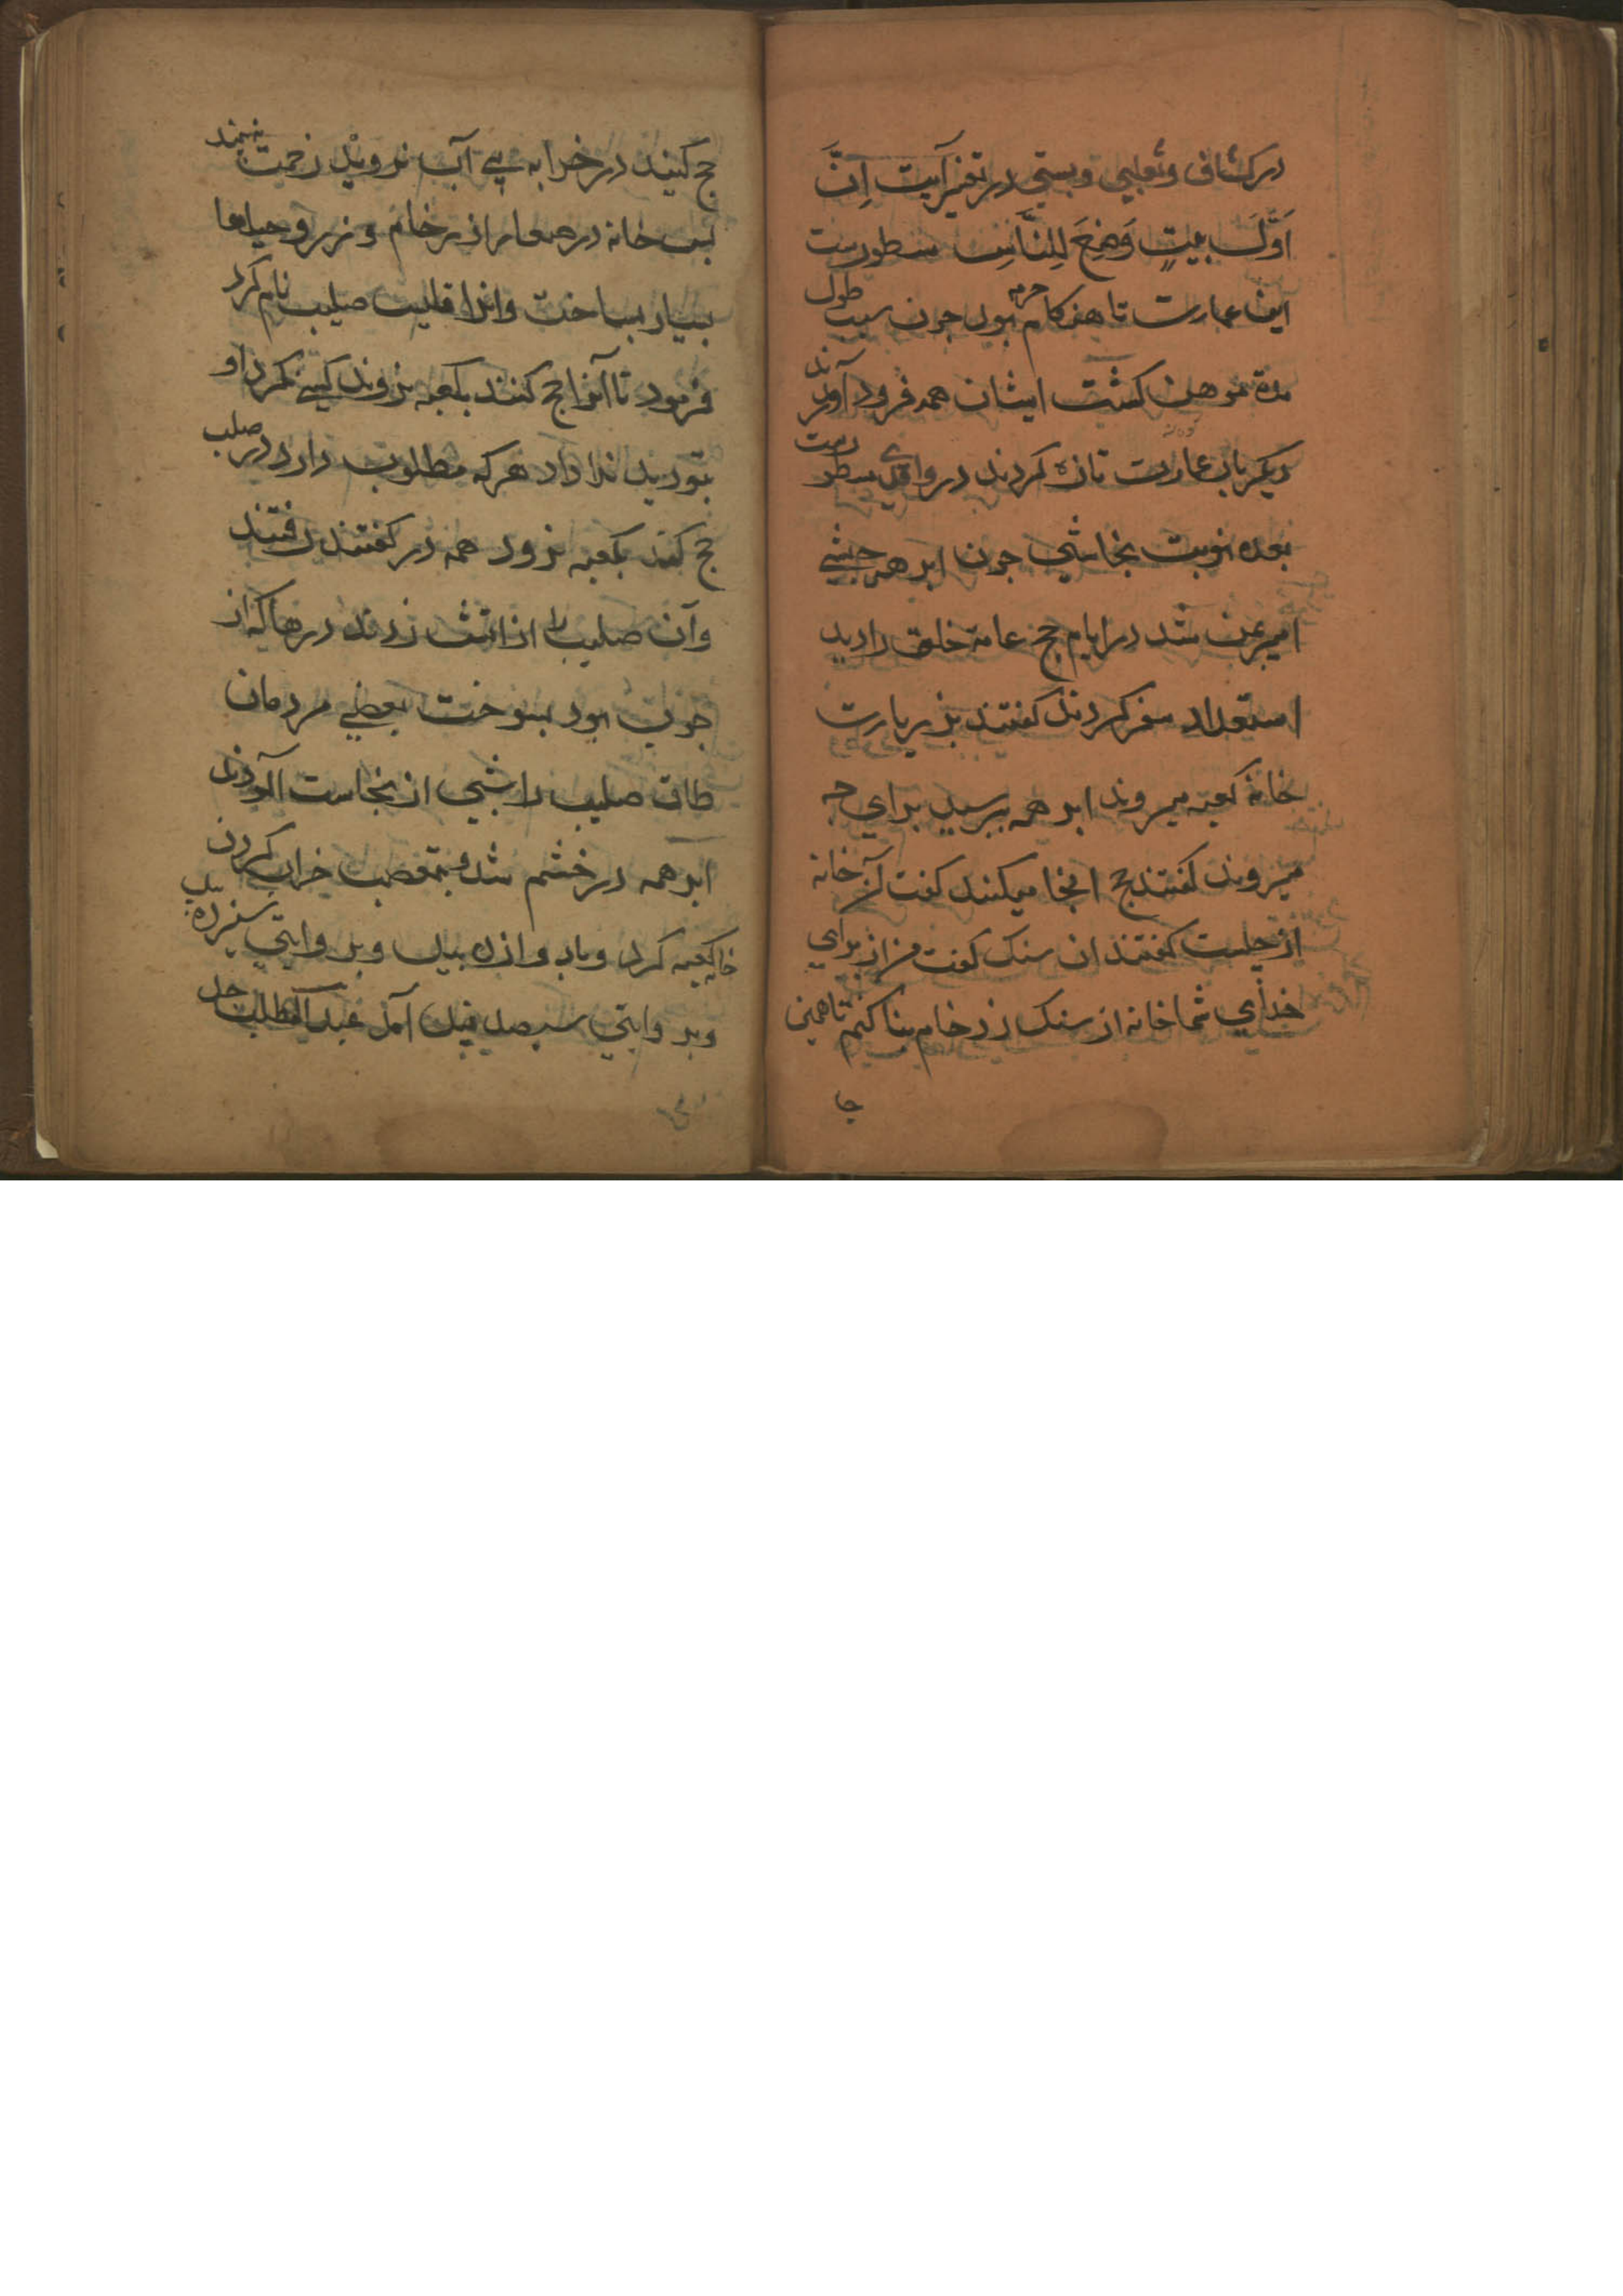 در کشاف و ثعلبی و بستی در تفسیر آیت اِنَّ
اَوَّلَ بَیتٍ وُضِعَ لِلنَّاسِ مسطورست
این عمارت تا هنکام جرهم بود جون بسبب طول
مدة موهن کشت ایشان همه فرود آوردند
دیکر بار عمارت تازه کردند در واقدی مسطورست
بعده نوبت نجاشی جون ابرهه حبشی
امیر یمن شد در ایام حج عامة خلق را دید
استعداد سفر کردند کفتند بزیارت
خانه کعبه میروند ابرهه پرسید برای جه
میروند کفتند حج انجا میکنند کفت آن خانه
از جیست کفتند از سنک کفت من از برای
خدای شما خانه از سنک زرد خام بنا کنم تا همین
جا
حج کنید در خرابه بی آب نروید زحمت نه بیند
بس خانه در صنعا از رخام و زر و حیلها
بسیار بساخت وانرا قلیت صلیب نام کرد
فرمود تا آنرا حج کنند بکعبه نروند کسی نکرد او
بتوردید ندا داد هر که مطلوب دارد در صلیب
حج کند بکعبه نرود همه در کفتند رفتند
وآن صلیب را از اتش زدند درها که از
جوب بود بسوخت بعضی مردمان
طاق صلیب را شبی از نجاست آلودند
ابرهه در خشم شد بتعصب خراب کردن
خانه کعبه کرد وبا دوازده بیل وبروایتی سیزده بیل
وبروایتی سیصد فیل آمد عبدالمطلب جد